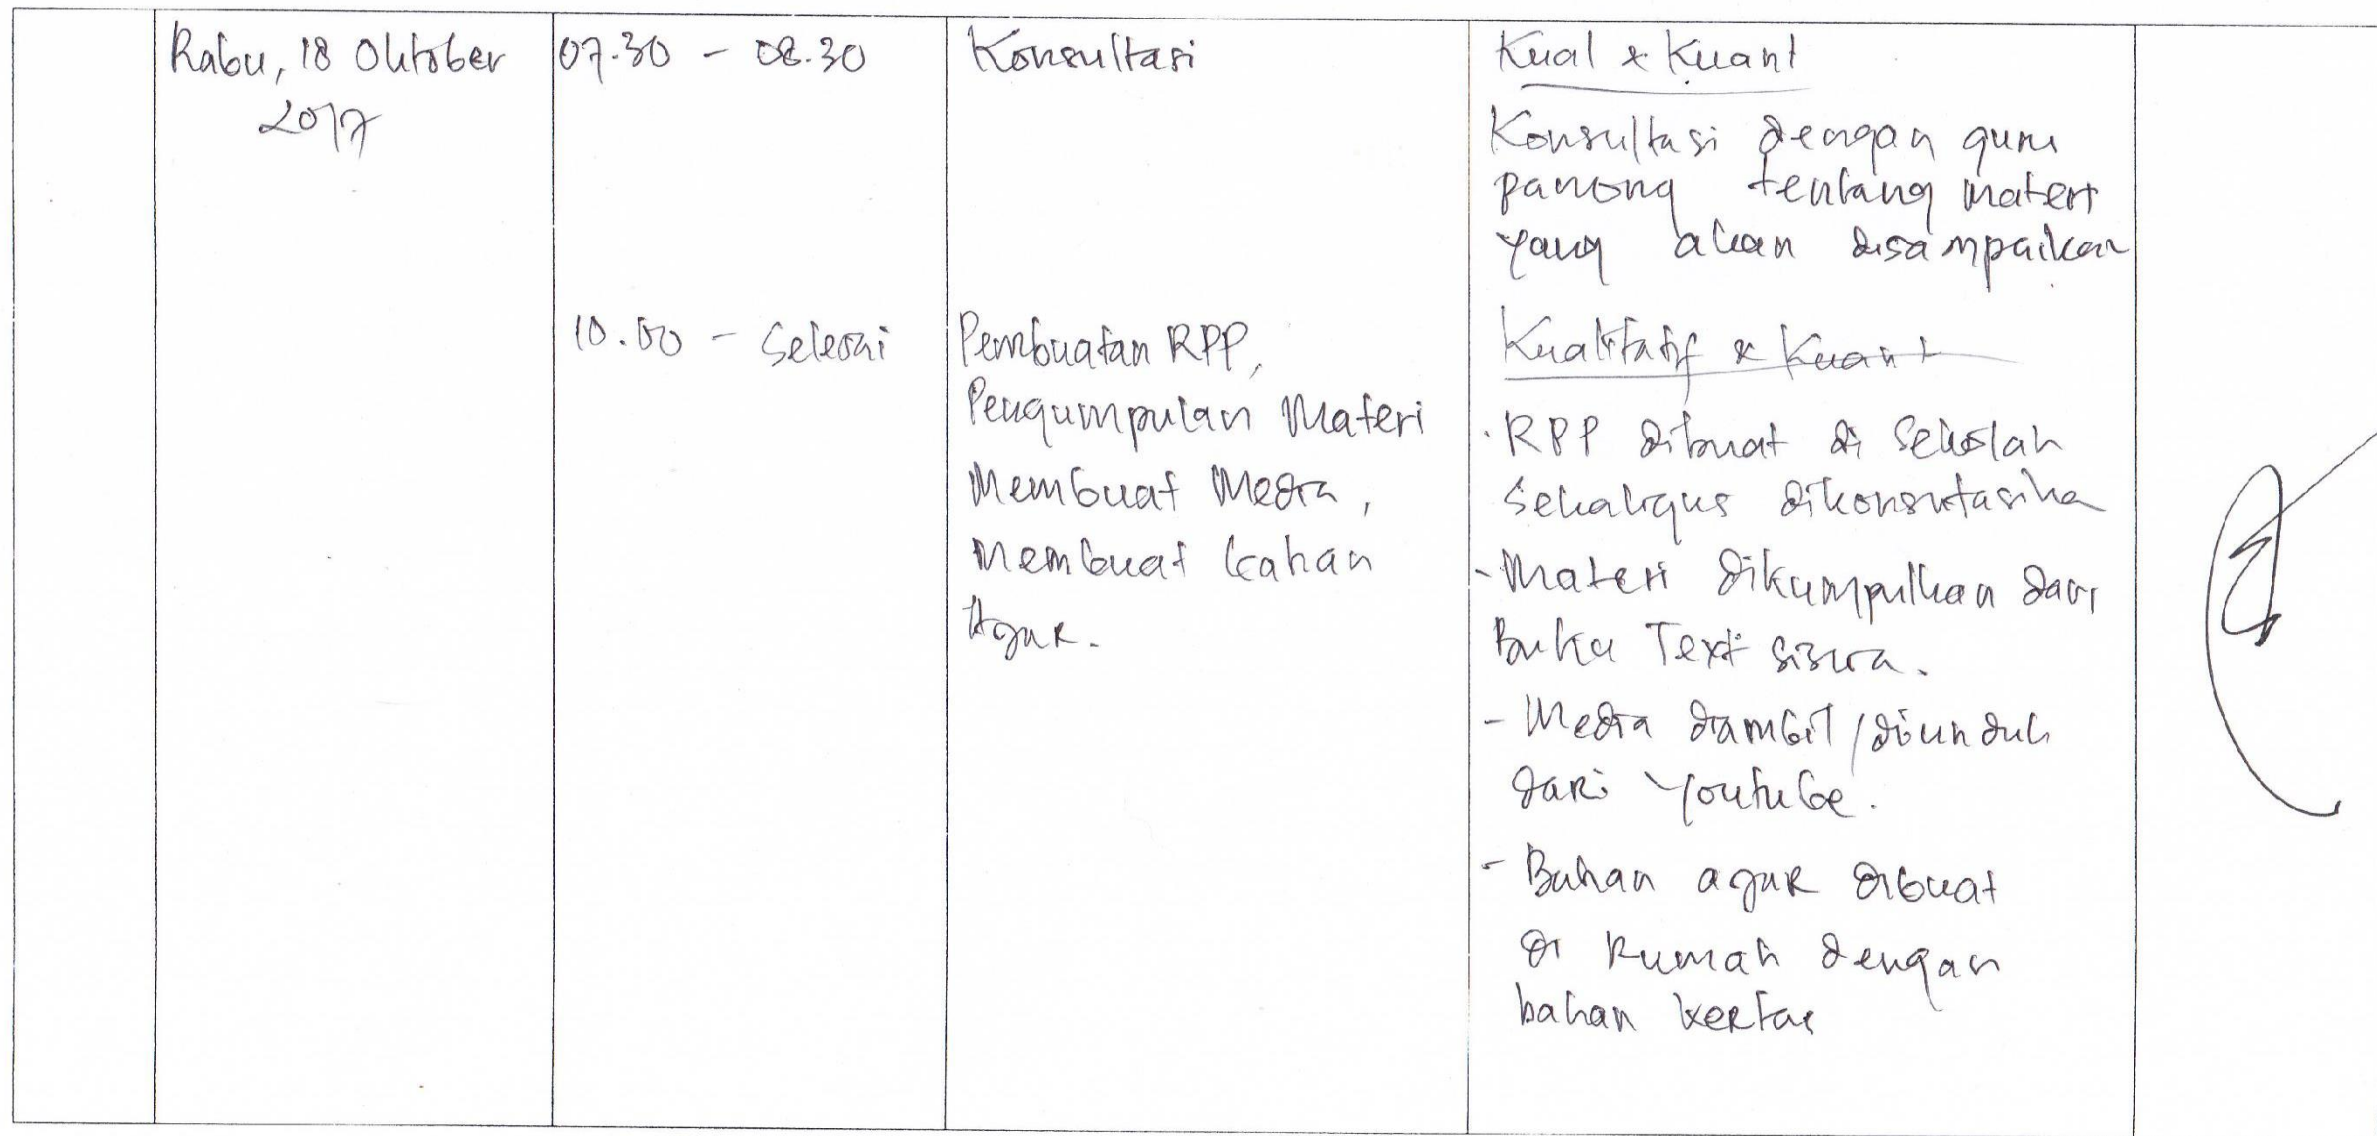 Rabu, 18 Oktober
2017
07.30 - 08.30
Konsultasi
Kual & Kuant
Konsultasi dengan guru
pamong tentang materi
yang akan disampaikan
10.00 - Selesai
Pembuatan RPP,
Pengumpulan Materi
Membuat Media,
Membuat bahan
Ajar.
Kualitatif & Kuant
. RPP dibuat di Sekolah
Sekaligus dikonsultasika
- Materi dikumpulkan dari
Buku Text siswa.
- Media diambil / diunduh
dari Youtube.
- Bahan ajar dibuat
di Rumah dengan
bahan kertas